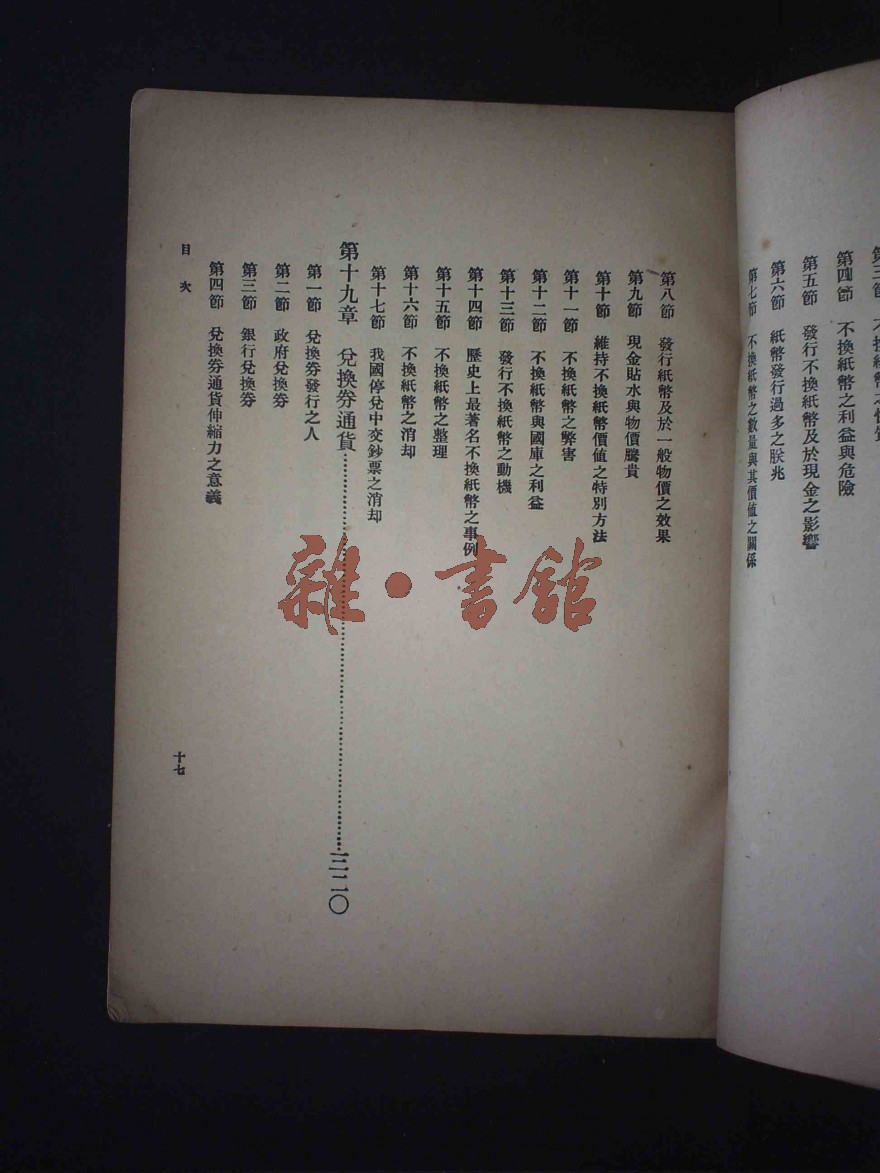 第四節　不換紙幣之利益與危險
第五節　發行不換紙幣及於現金之影響
第六節　紙幣發行過多之朕兆
第七節　不換紙幣之數量與其價值之關係
第八節　發行紙幣及於一般物價之效果
第九節　現金貼水與物價騰貴
第十節　維持不換紙幣價值之特別方法
第十一節　不換紙幣之弊害
第十二節　不換紙幣與國庫之利益
第十三節　發行不換紙幣之動機
第十四節　歷史上最著名不換紙幣之事例
第十五節　不換紙幣之整理
第十六節　不換紙幣之消却
第十七節　我國停兌中交鈔票之消却
第十九章　兌換券通貨……三二〇
第一節　兌換券發行之人
第二節　政府兌換券
第三節　銀行兌換券
第四節　兌換券通貨伸縮力之意義
目次
十七
雜·書館